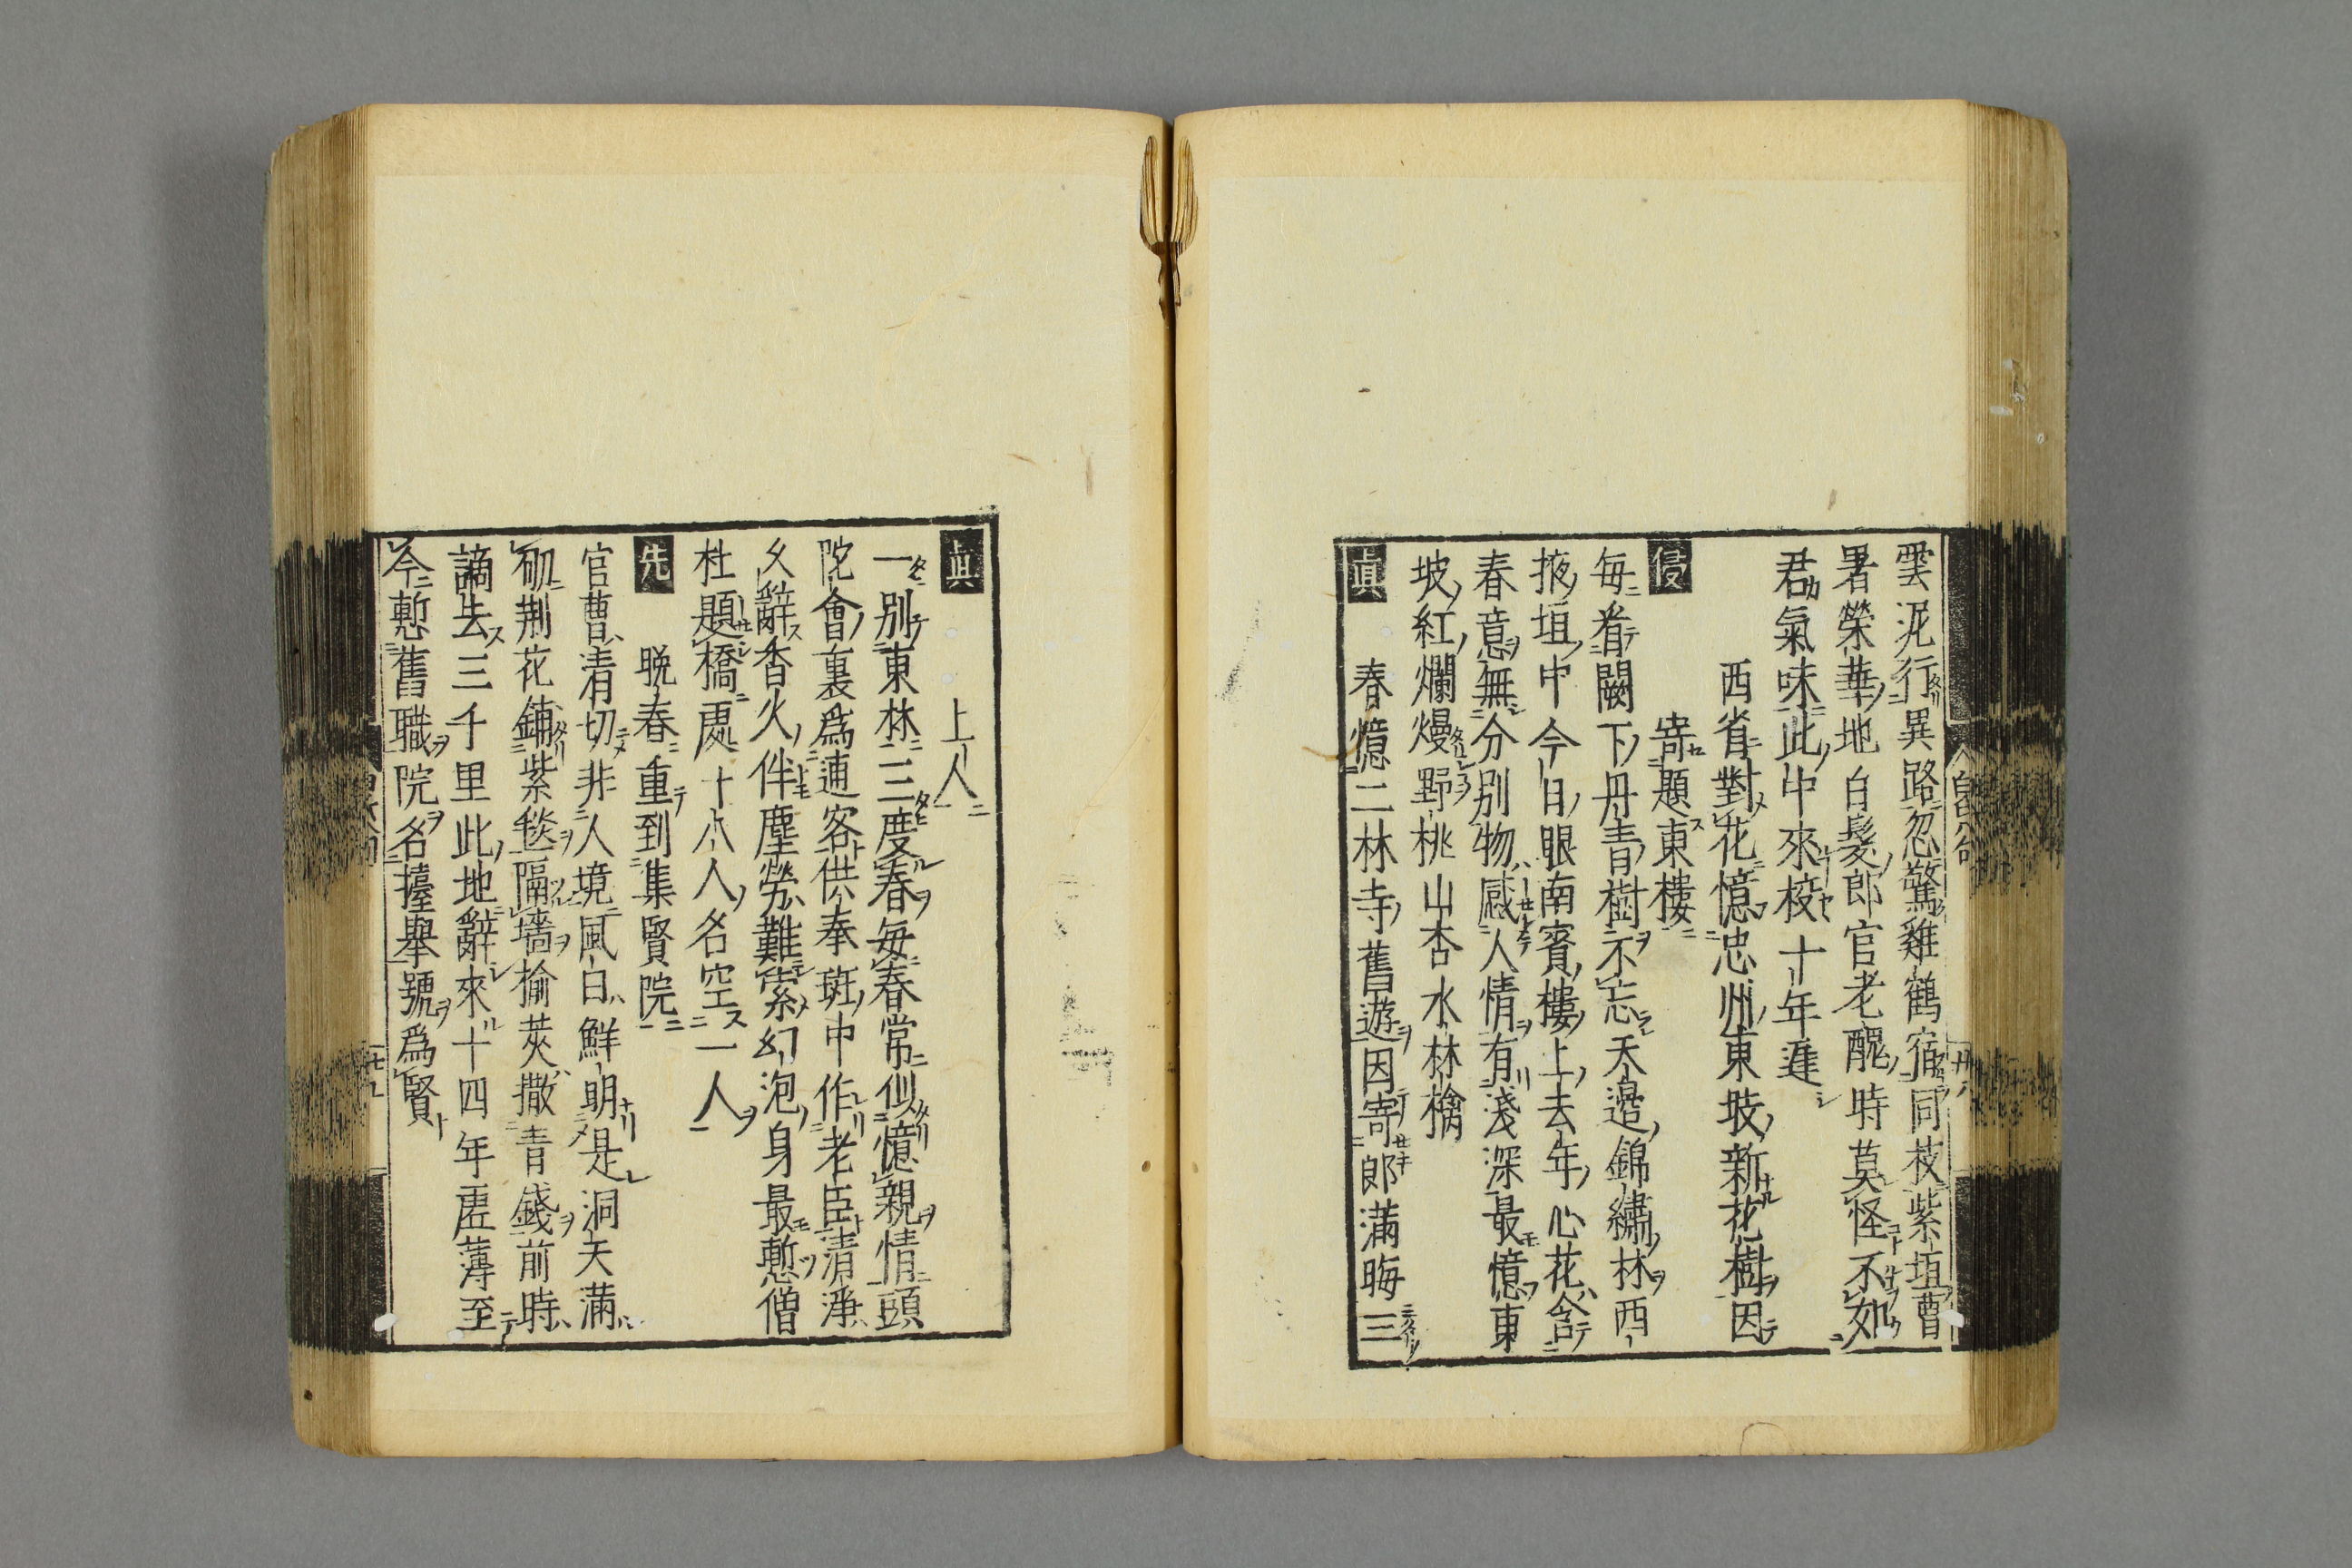 雲泥行異路忽驚雞鶴宿同枝紫垣曹
署榮華地白髮郎官老醜時莫怪不如
君氣味此中來校十年遲
西省對花憶忠州東坡新花樹因
侵 寄題東樓
每看闕下丹青樹不忘天邊錦繡林西
掖垣中今日眼南賓樓上去年心花含
春意無分別物感人情有淺深最憶東
坡紅爛熳野桃山杏水林檎
眞 春憶二林寺舊遊因寄郎滿晦三
眞 上人
一別東林三度春每春常似憶親情頭
陀會裏爲逋客供奉班中作老臣清淨
久辭香火伴塵勞難索幻泡身最慙僧
社題橋處十八人名空一人
先 晩春重到集賢院
官曹清切非人境風日鮮明是洞天滿
砌荆花鋪紫毯隔墻榆莢撒青錢前時
謫去三千里此地辭來十四年虛薄至
今慙舊職院名擡舉號爲賢